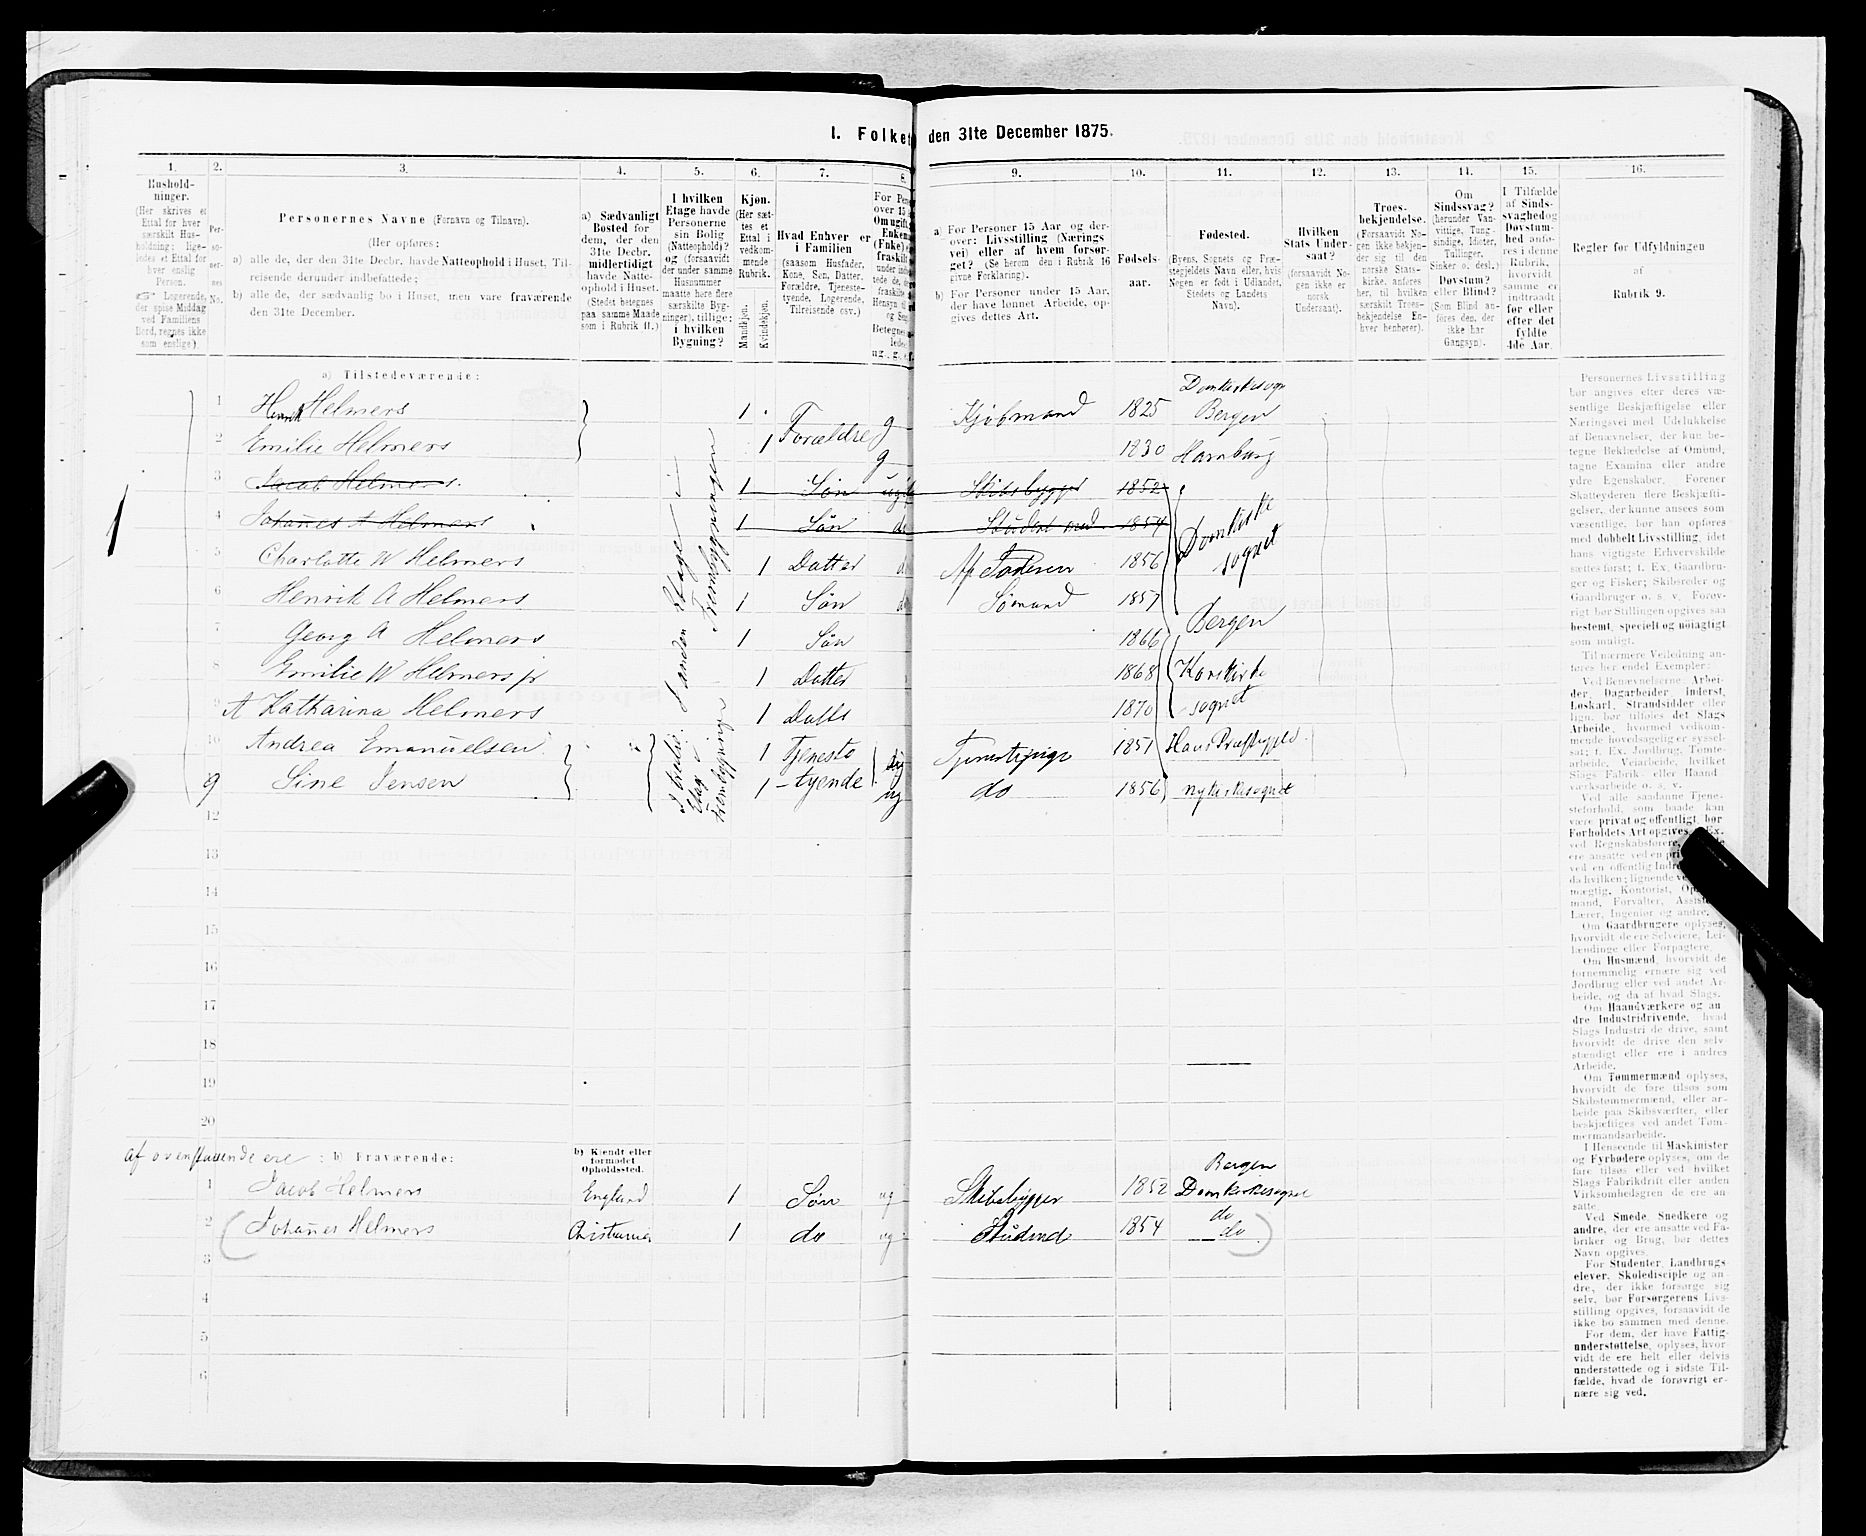 I. Folket
den 31te December 1875.
1.
2.
3.
4.
5.
6.
7.
8.
9.
10.
11.
12.
13.
14.
15.
16.
Hushold-
ninger.
(Her skrives et
Ettal for hver
særskilt Hus-
holdning; lige-
ledes et Ettal for
hver enslig
Person.
Logerende,
der spise Middag
ved Familiens
Bord, regnes ikke
som enslige).
Per-
so-
ner-
nes
No.
Personernes Navne (Fornavn og Tilnavn).
(Her opføres:
a) alle de, der den 31te Decbr. havde Natteophold i Huset, Til-
reisende derunder indbefattede;
b) alle de, der sædvanlig bo i Huset, men vare fraværende
den 31te December.
a) Sædvanligt
Bosted for
dem, der den
31te Decbr.
midlertidigt
havde Natte-
ophold i Huset.
(Stedet betegnes
paa samme Maade
som i Rubrik 11.)
I hvilken
Etage havde
Personerne
sin Bolig
(Natteophold)?
og (forsaavidt
der under samme
Husnummer
maatte høre flere
særskilte Byg-
ninger), tillige:
i hvilken
Bygning?
Kjøn.
(Her sæt-
tes et
Ettal i
vedkom-
mende
Rubrik.
Mandkjøn.
Kvindekjøn.
Hvad Enhver er
i Familien
(saasom Husfader,
Kone, Søn, Datter,
Forældre, Tjeneste-
tyende, Logerende,
Tilreisende osv.)
a) For Personer 15 Aar og der-
over: Livsstilling (Nærings
vei) eller af hvem forsør-
get? (Se herom den i Rubrik 16
givne Forklaring).
b) For Personer under 15 Aar,
der have lønnet Arbeide, op-
gives dettes Art.
Fødsels-
aar.
Fødested.
(Byens, Sognets og Præ-
stegjeldets Navn eller, hvis
Nogen er født i Udlandet,
Stedets og Landets
Navn).
Hvilken
Stats Under-
saat?
(forsaavidt No-
gen ikke er
norsk
Undersaat).
Troes-
bekjendelse.
(Forsaavidt No-
gen ikke bekjen-
der sig til den
norske Stats-
kirke, anføres
her, til hvilken
særskilt Troes-
bekjendelse En-
hver henhører).
Om
Sindssvag?
(herunder Van-
vittige, Tung-
sindige, Idioter,
Tullinger,
Sinker o. desl.)
Døvstum?
eller Blind?
(Som Blind an-
føres den, der
ikke har
Gangsyn).
I Tilfælde
af Sinds-
svaghed og
Døvstum-
hed anfø-
res i denne
Rubrik,
hvorvidt
samme er
indtraadt
før eller
efter det
fyldte
4de Aar.
Regler for Udfyldningen
af
Rubrik 9.
a) Tilstedeværende:
1 Henrik Helmers 1 Forældre g Kjøbmand 1825 Domkirkesogn Bergen
2 Emilie Helmers 1 g 1830 Hamburg
3 Jacob Helmers 1 Søn Skibsbygger 1852
4 Johannes A Helmers 1 Søn 1854
5 Charlotte W Helmers 1 Datter 1856
6 Henrik A Helmers 1 Søn Sømand 1857
Domkirke
sognet
7 Georg A Helmers 1 Søn 1866 Bergen
8 Emilie W Helmers jr 1 Datter 1868 Korskirke
9 A Katharina Helmers 1 Datter 1870 sognet
10 Andrea Emanuelsen 1 Tjeneste 1851
g Sine Jensen 1 -tyende ug do 1856 Nykirkesognet
I anden Etage i
Frembygningen
I tredie
Etage i
Frembygningen
12
13
14
15
16
17
18
19
20
af ovenstaaende ere : b) Fraværende:
b) Kjendt eller
formodet
Opholdssted.
1 Jacob Helmers England 1 Søn ug Skibsbygger 1852 Bergen Domkirkesognet
2 Johannes Helmers Christiania 1 do ug Student 1854 do do
3
4
5
6
Personernes Livsstilling
bør angives efter deres væ-
sentlige Beskjæftigelse eller
Næringsvei med Udelukkelse
af Benævnelser, der kun be-
tegne Beklædelse af Ombud,
tagne Examina eller andre
ydre Egenskaber. Forener
Skatteyderen flere Beskjæfti-
gelser, der kunne ansees som
væsentlige, bør han opføres
med dobbelt Livsstilling, idet
hans vigtigste Erhvervskilde
sættes først; f. Ex. Gaardbru-
ger og Fisker; Skibsreder og
Gaardbruger o. s. v. Forøv-
rigt bør Stillingen opgives saa
bestemt, specielt og nøiagtigt
som muligt.
Til nærmere Veiledning an-
føres her endel Exempler:
Ved Benævnelserne Arbei-
der, Dagarbeider, Inderst,
Løskarl, Strandsidder eller
lign. bør tilføies det Slags
Arbeide, hvormed vedkom-
mende hovedsagelig er syssel-
sat; f. Ex. Jordbrug, Tømte-
arbeide, Veiarbeide, hvilket
Slags Fabrik- eller Haand-
værksarbeide o. s. v.
Om Gaardbrugere oplyses,
hvorvidt de ere Selveiere, Lei-
lændinge eller Forpagtere.
Om Husmænd, hvorvidt de
fornemmelig ernære sig ved
Jordbrug eller ved andet Ar-
beide, og da af hvad Slags.
Om Haandværkere og an-
dre Industridrivende, hvad
Slags Industri de drive, samt
hvorvidt de drive den selv-
stændigt eller ere i andres
Arbeide.
Om Tømmermænd oplyses,
hvorvidt de fare tilsøs som
Skibstømmermænd, eller ar-
beide paa Skibsværfter, eller
beskjæftiges ved andet Tøm-
mermandsarbeide.
I Henseende til Maskinister
og Fyrbødere oplyses, om de
fare tilsøs eller ved hvilket
Slags Fabrikdrift eller anden
Virksomhedsgren de ere an-
satte.
Ved Smede, Snedkere og
andre, der ere ansatte ved Fa-
briker og Brug, bør dettes
Navn opgives.
For Studenter, Landbrugs-
elever, Skoledisciple og an-
dre, der ikke forsørge sig
selv, bør Forsørgerens Livs-
stilling opgives, forsaavidt de
ikke bo sammen med denne.
For dem, der have Fattig-
understøttelse, oplyses, hvor-
vidt de ere helt eller delvis
understøttede og i sidste Til-
fælde, hvad de forøvrigt er-
nære sig ved.